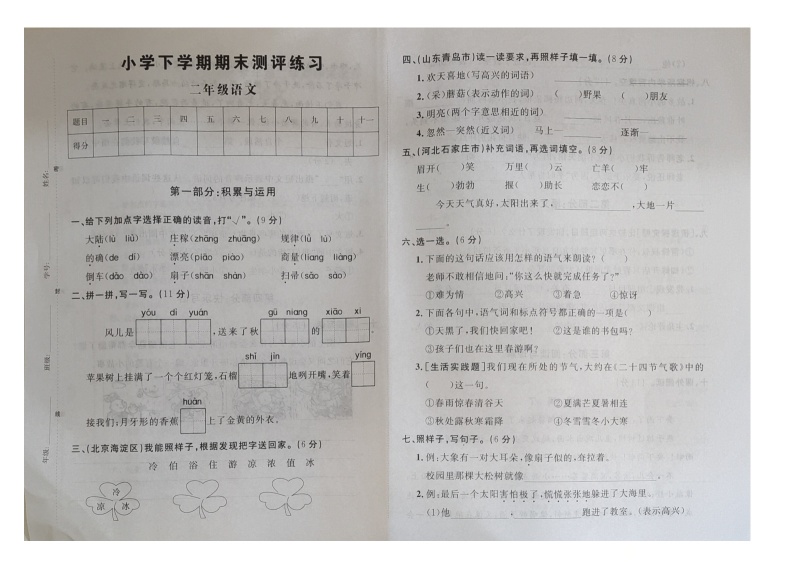 小学下学期期末测评练习
二年级语文
题目 一 二 三 四 五 六 七 八 九 十 十一
得分
姓名:
学号:
班级:
年级:
第一部分:积累与运用
一、给下列加点字选择正确的读音,打“√”。(9分)
大陆(lù liù) 庄稼(zhāng zhuāng) 规律(lǜ lù)
的确(de dí) 漂亮(piāo piào) 商量(liang liàng)
倒车(dǎo dào) 扇子(shān shàn) 扫帚(sǎo sào)
二、拼一拼,写一写。(11分)
yóu dì yuán gū niang xiāo xi
风儿是 ,送来了秋 的 。
shí jīn yíng
苹果树上挂满了一个个红灯笼,石榴 地咧开嘴,笑着
huàn
接我们;月牙形的香蕉 上了金黄的外衣。
三、(北京海淀区)我能照样子,根据发现把字送回家。(6分)
冷 伯 浴 住 游 凉 浓 值 冰
冷
凉 冰
四、(山东青岛市)读一读要求,再照样子填一填。(8分)
1.欢天喜地(写高兴的词语)
2.(采)蘑菇(表示动作的词) ( )野果 ( )朋友
3.明亮(两个字意思相近的词)
4.忽然—突然(近义词) 马上— 逐渐—
五、(河北石家庄市)补充词语,再选词填空。(8分)
眉开( )笑 万里( )云 亡羊( )牢
生( )勃勃 揠( )助长 恋恋不( )
今天天气真好,太阳出来了, ,大地一片
。
六、选一选。(6分)
1.下面的这句话应该用怎样的语气来朗读?( )
老师不敢相信地问:“你这么快就完成任务了?”
①难为情 ②高兴 ③着急 ④惊讶
2.下面各句中,语气词和标点符号都正确的一项是( )
①天黑了,我们快回家吧! ②这是谁的书包吗?
③孩子们也在这里春游啊?
3.[生活实践题]我们现在所处的节气,大约在《二十四节气歌》中的
( )这一句。
①春雨惊春清谷天 ②夏满芒夏暑相连
③秋处露秋寒霜降 ④冬雪雪冬小大寒
七、照样子,写句子。(6分)
1.例:大象有一对大耳朵,像扇子似的,耷拉着。
校园里那棵大松树就像 。
2.例:最后一个太阳害怕极了,慌慌张张地躲进了大海里。
(1)他 , 跑进了教室。(表示高兴)